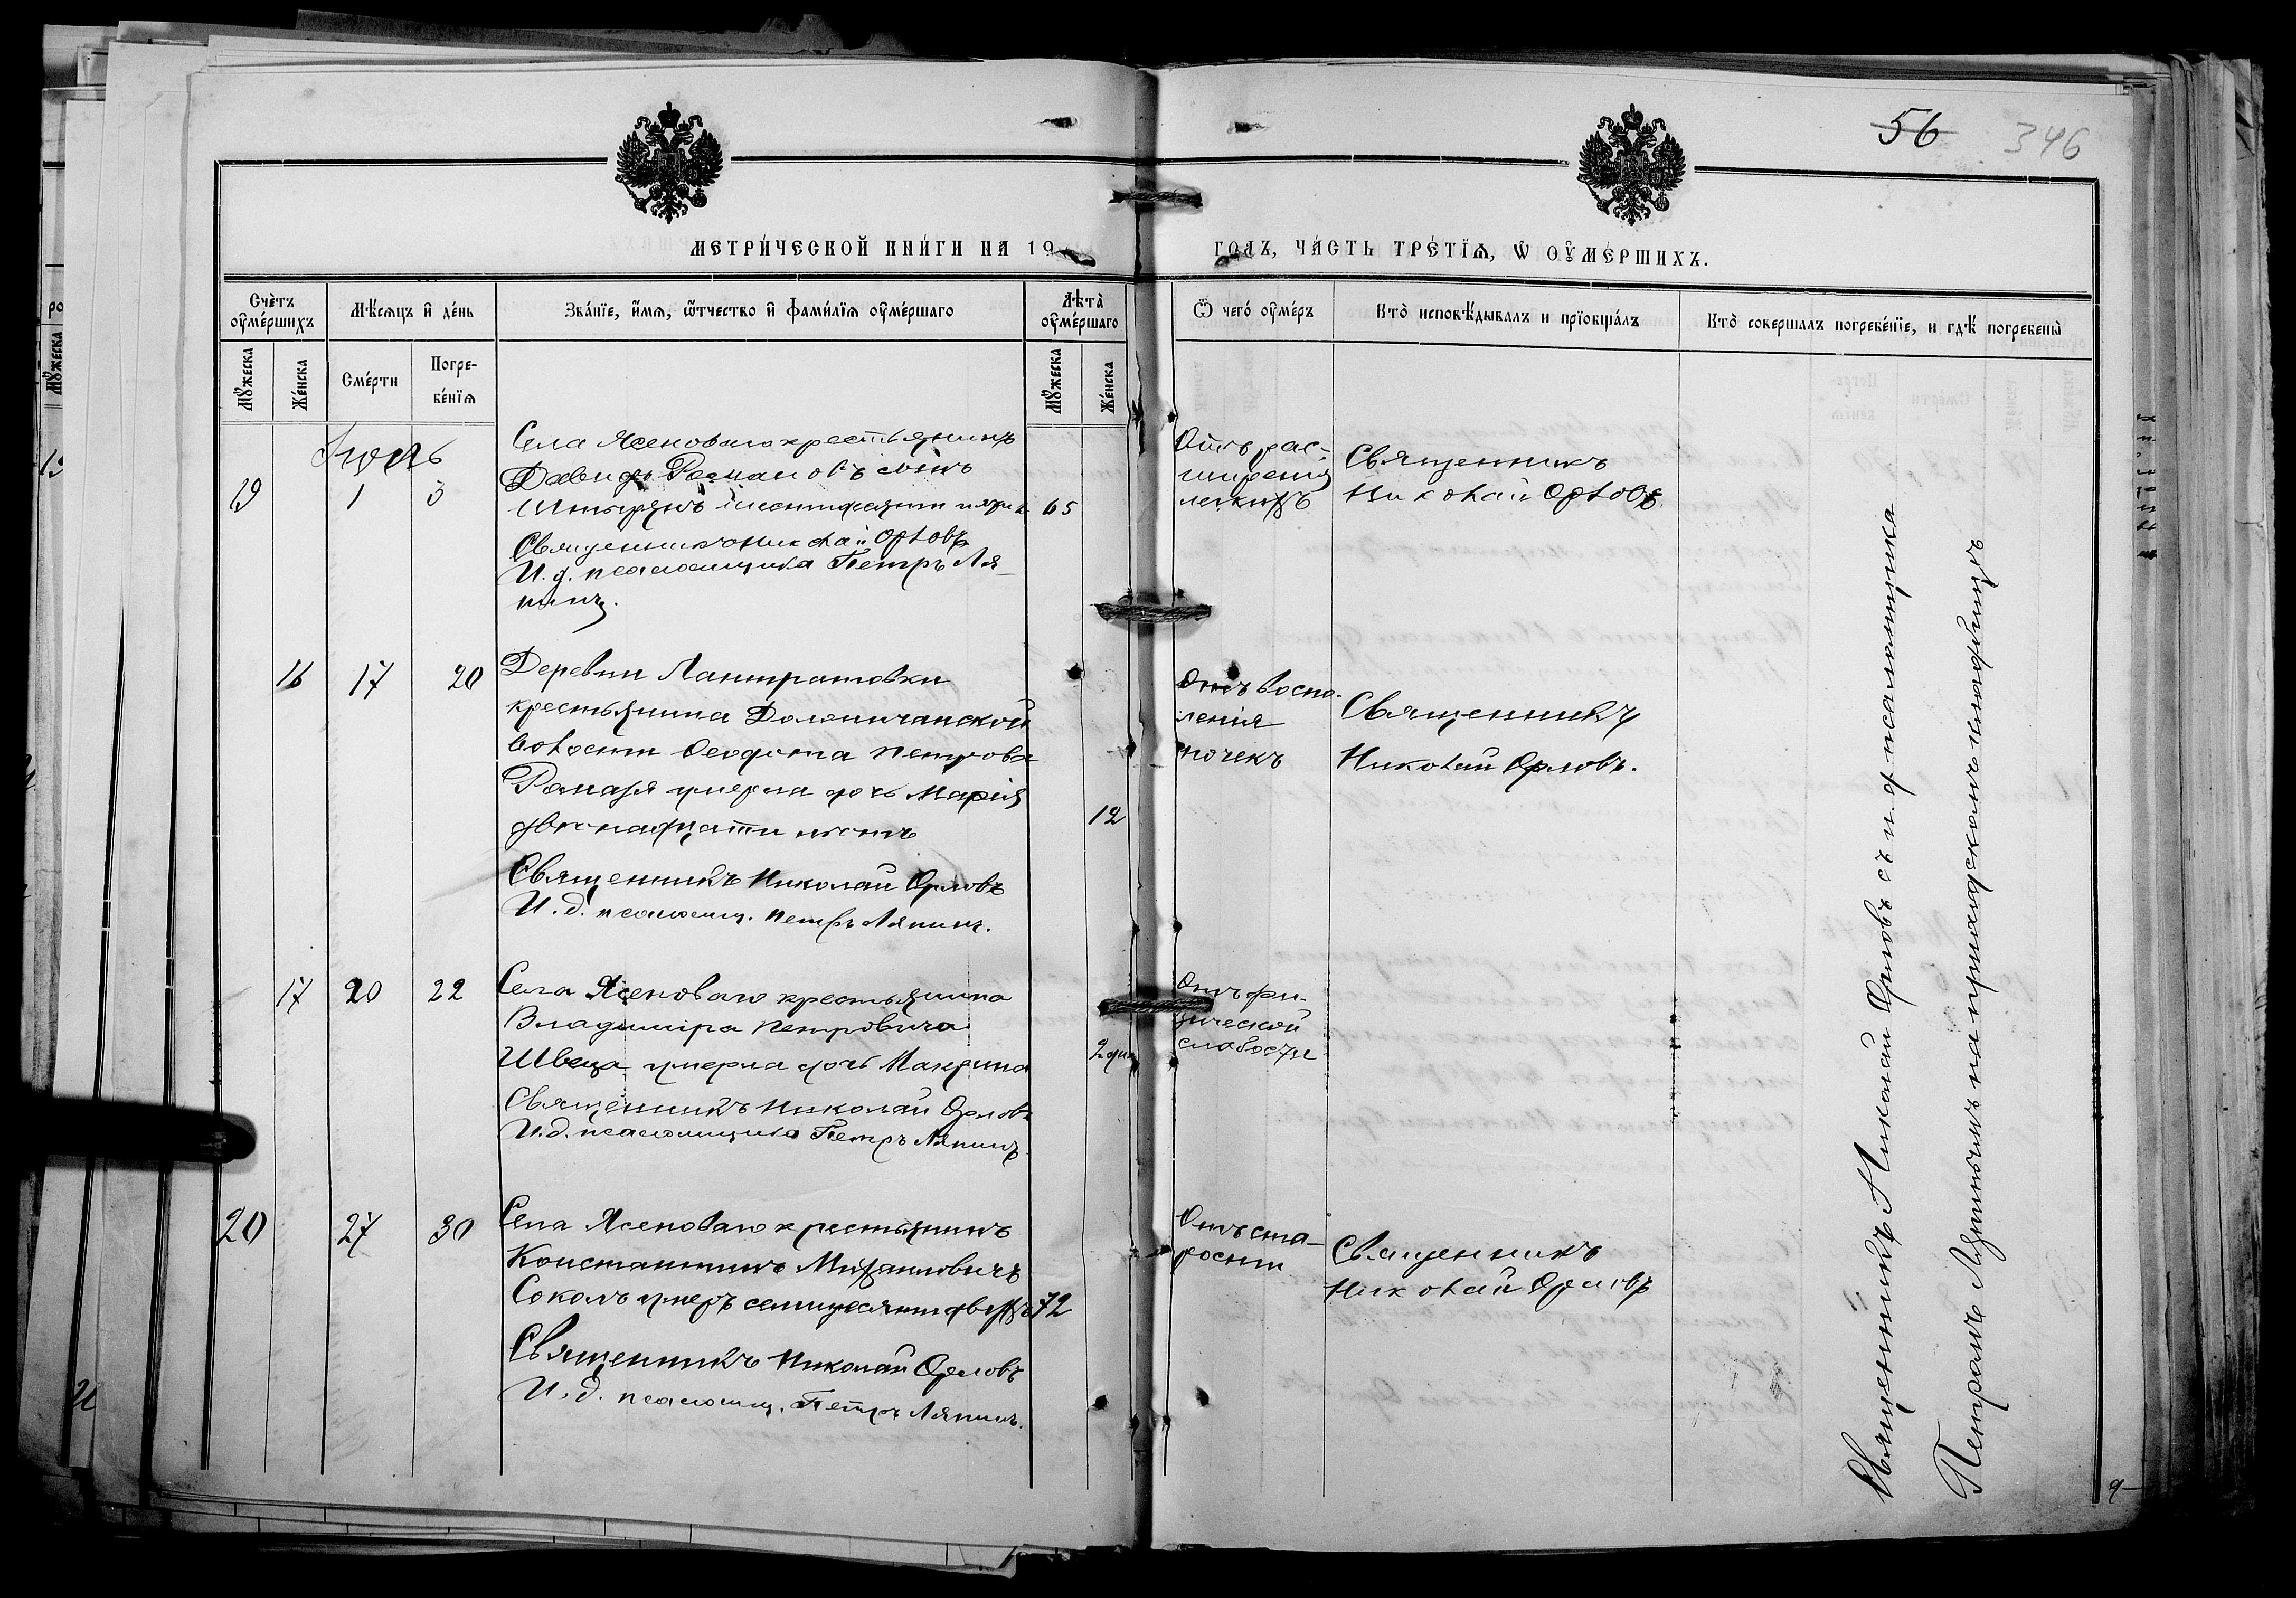 56 346
МЕТРИЧЕСКОЙ КНИГИ НА 19 ГОДЪ, ЧАСТЬ ТРЕТІЯ, Ѡ ОУМЕРШИХЪ.
Счетъ оумершихъ
Мѣсяцъ и день
Званіе, имя, ѿтчество и фамилія оумершаго
Лѣта оумершаго
Ѿ чего оумеръ
Кто исповѣдывалъ и пріобщалъ
Кто совершалъ погребеніе, и гдѣ погребены
Мужеска
Женска
Смерти
Погребенія
Мужеска
Женска
Іюль
19 1 3
Села Ясеноваго крестьянинъ
Давидъ Романовъ сынъ
шестидесяти пяти 65
Священникъ Николай Орловъ
И. д. псаломщика Петръ Ля-
пинъ.
Отъ рас-
ширенія
легкихъ
Священникъ
Николай Орловъ
16 17 20
Деревни Лантратовки
крестьянина
волости Феодота Петрова
умерла дочь Марія
двенадцати лѣтъ 12
Священникъ Николай Орловъ
И. д. псаломщ. Петръ Ляпинъ.
Отъ воспа-
ленія
почекъ
Священникъ
Николай Орловъ.
17 20 22
Села Ясеноваго крестьянина
Владиміра Петровича
Швеца умерла дочь Макрина 2 дн
Священникъ Николай Орловъ
И. д. псаломщика Петръ Ляпинъ
Отъ фи-
зической
слабости
20 27 30
Села Ясеноваго крестьянинъ
Константинъ Михаиловичъ
Соколъ умеръ семидесяти двухъ 72
Священникъ Николай Орловъ
И. д. псаломщ. Петръ Ляпинъ.
Отъ ста-
рости
Священникъ
Николай Орловъ
Священникъ Николай Орловъ съ и д псаломщика
Петромъ Ляпинымъ на приходскомъ кладбищѣ